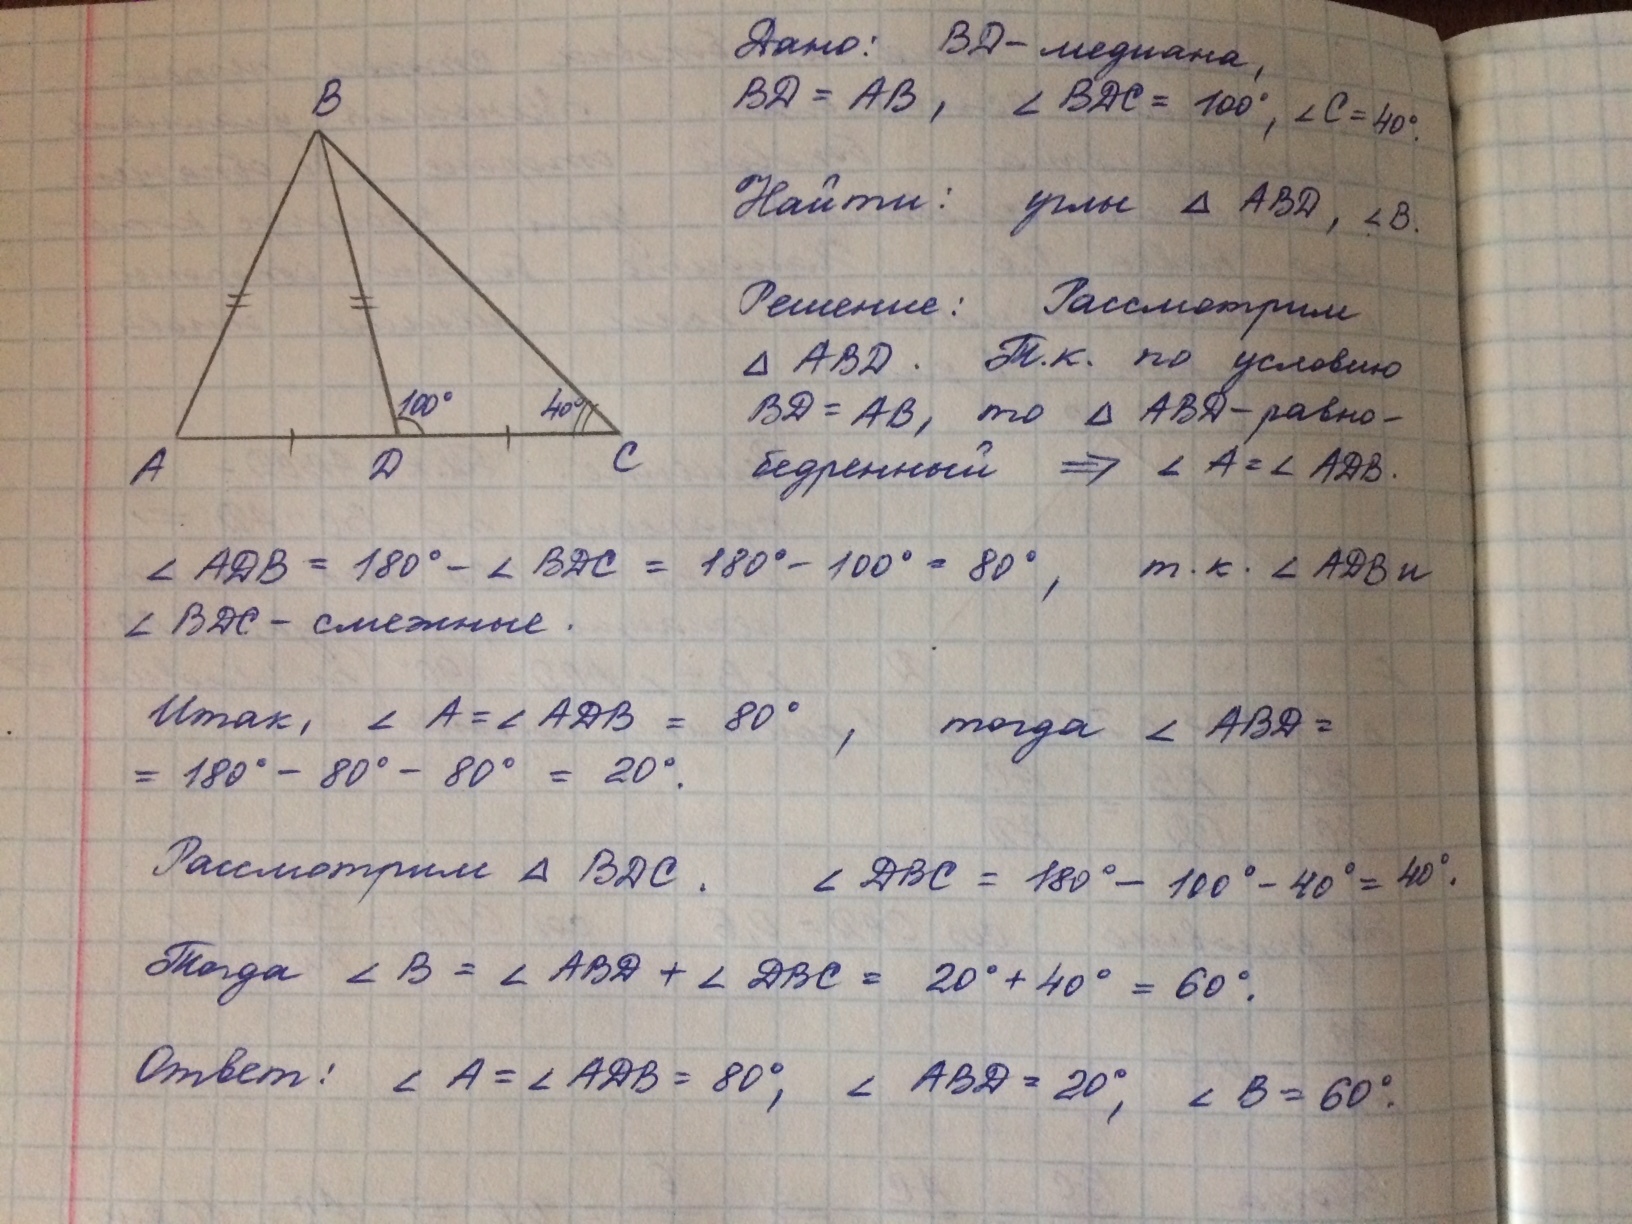 Дано: BD - медиана,
BD = AB, ∠BDC = 100°, ∠C = 40°.
Найти: углы △ ABD, ∠B.
Решение: Рассмотрим
△ ABD. Т.к. по условию
BD = AB, то △ ABD - равно-
бедренный ⇒ ∠A = ∠ADB.
B
100°
40°
A
D
C
∠ADB = 180° - ∠BDC = 180° - 100° = 80°, т.к. ∠ADB и
∠BDC - смежные.
Итак, ∠A = ∠ADB = 80°, тогда ∠ABD =
= 180° - 80° - 80° = 20°.
Рассмотрим △ BDC. ∠DBC = 180° - 100° - 40° = 40°.
Тогда ∠B = ∠ABD + ∠DBC = 20° + 40° = 60°.
Ответ: ∠A = ∠ADB = 80°, ∠ABD = 20°, ∠B = 60°.